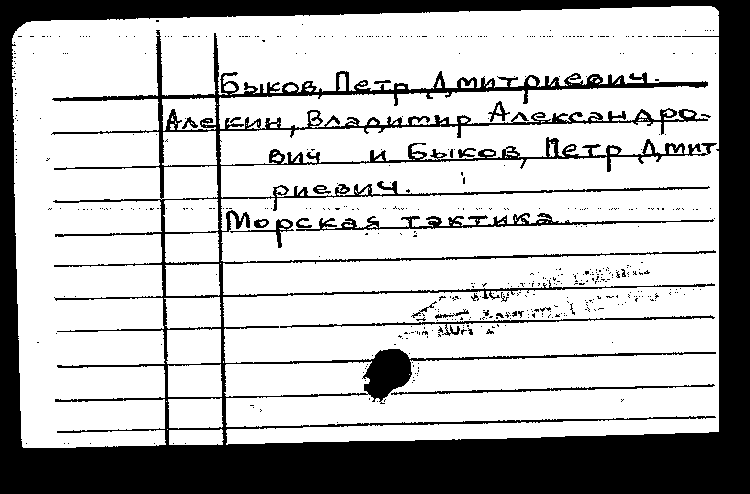 Быков, Петр Дмитриевич.
Алекин, Владимир Александро-
вич и Быков, Петр Дмит-
риевич.
Морская тактика.